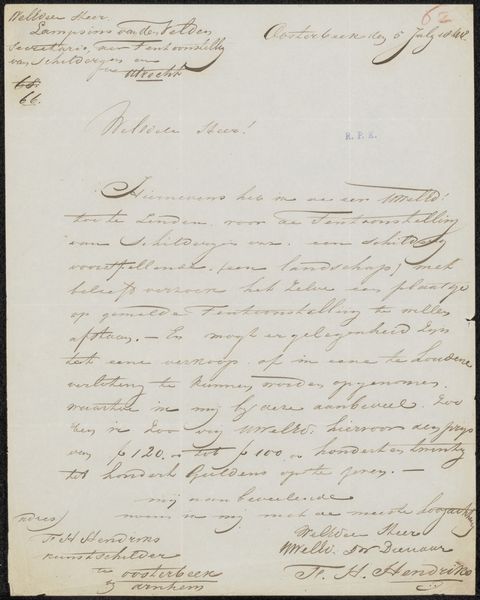 WelEdele Heer
Lampsins van den Velden
Secretaris der Tentoonstelling
van Schilderyen enz
te Utrecht
68.
66.
62
Oosterbeek den 5 July 1848.
WelEdele Heer!
R. P. K.
Hiernevens heb ik de eer UWelEd:
toe te Zenden voor de Tentoonstelling
van Schilderyen enz. een Schildery
voorstellende (een landschap) met
beleefd verzoek het Zelve een plaatsje
op gemelde Tentoonstelling te willen
afstaan. — En mogt er gelegenheid Zyn
dat eene verkoop of in eene te houdene
verloting te kunnen worden opgenomen
waartoe ik my by deze aanbeveel. Zoo
ben ik Zoo vry UWelEd: hiervoor den prys
van ƒ 120. tot ƒ 100. honderd en twintig
tot honderd Guldens op te geven. —
my aanbevelende
noem ik my met de meeste hoogachting
WelEdele Heer
UWelEd. DW Dienaar
F. H. Hendriks
adres)
F H Hendriks
Kunstschilder
te Oosterbeek
by Arnhem